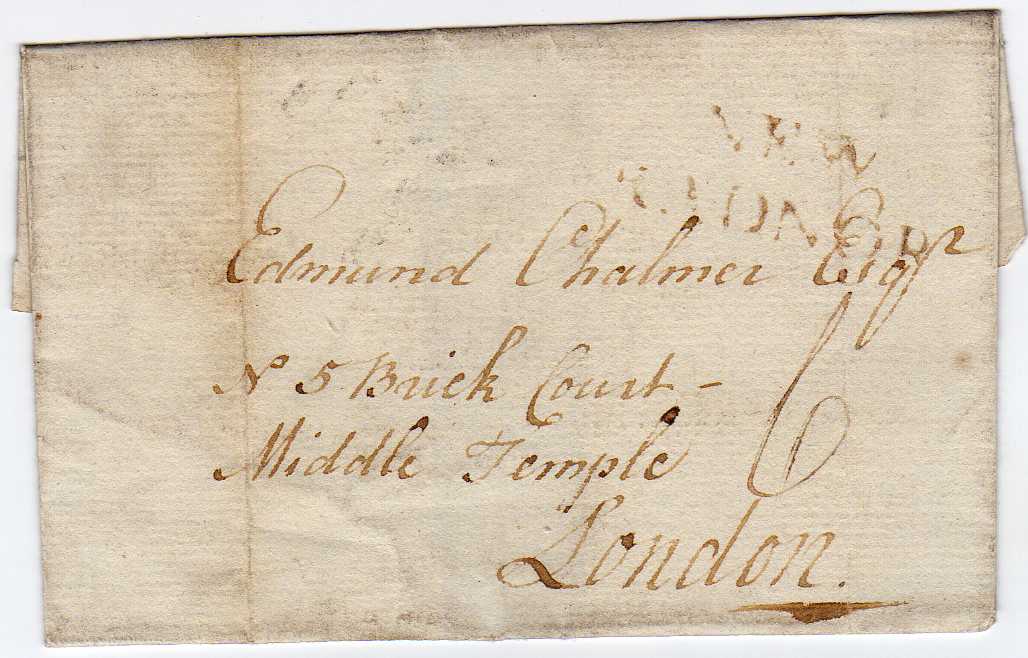 NEW
Edmund Chalmer Esqr
No 5 Brick Court -
Middle Temple
6
London.